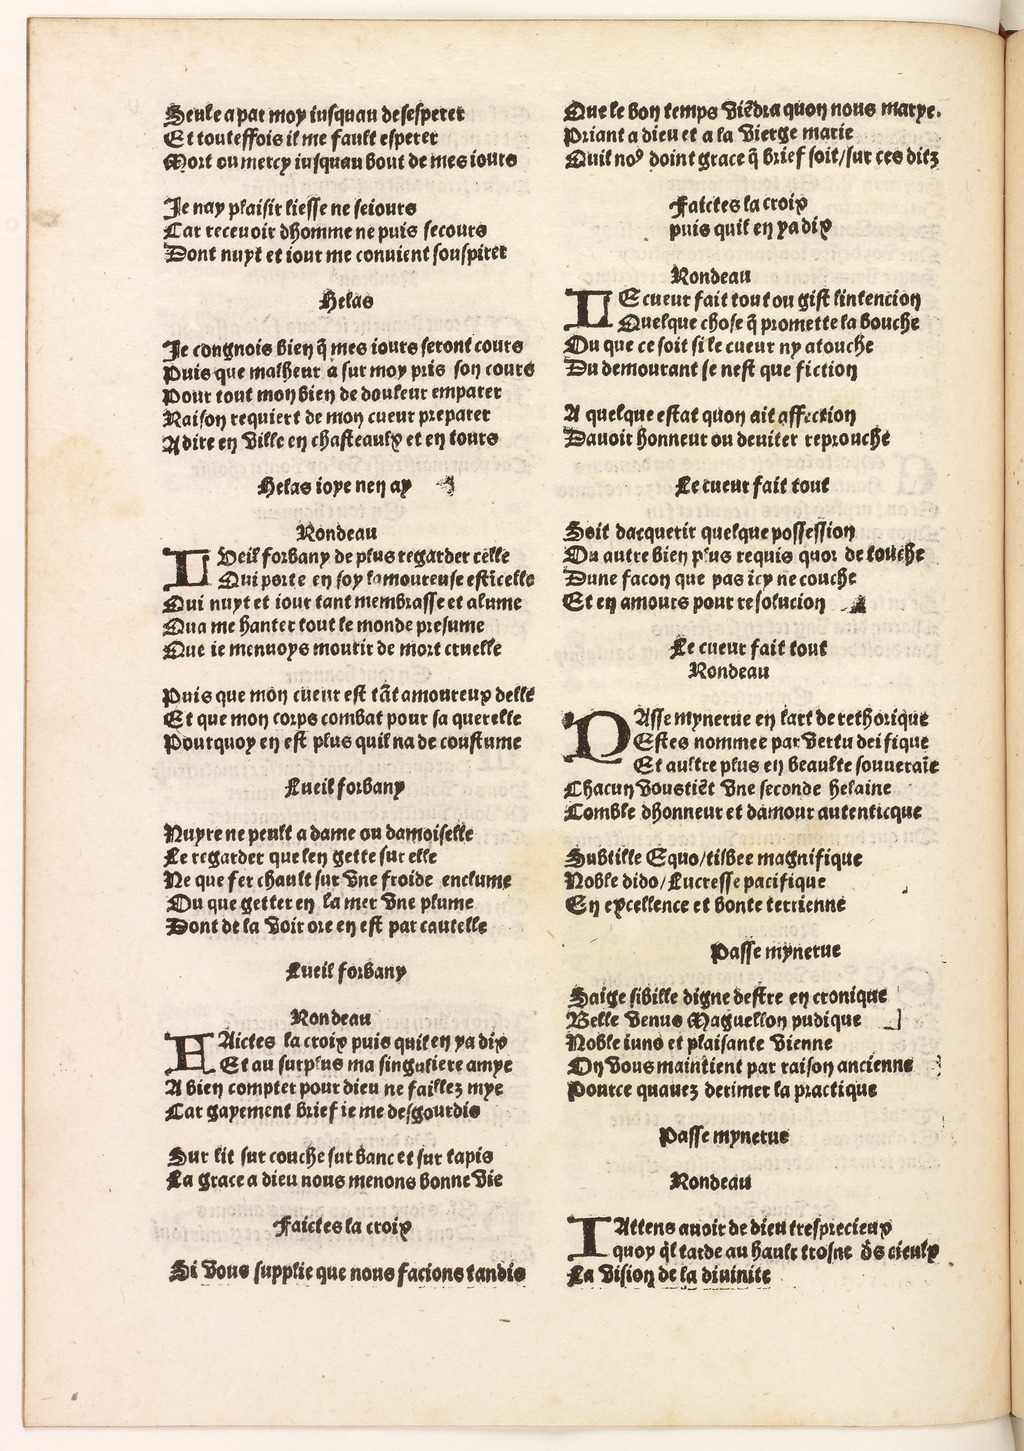 Seule a par moy iusquau desesperer
Et touteffois il me fault esperer
Mort ou mercy iusquau bout de mes iours
Je nay plaisir liesse ne seiours
Car recevoir dhomme ne puis secours
Dont nuyt et iour me conuient souspirer
Helas
Je congnois bien q̃ mes iours seront cours
Puis que malheur a sur moy pris son cours
Pour tout mon bien de douleur emparer
Raison requiert de mon cueur preparer
A dire en ville en chasteaulx et en tours
Helas ioye nen ay
Rondeau
Lveil forbany de plus regarder celle
Qui porte en soy lamoureuse estĩcelle
Qui nuyt et iour tant membrasse et alume
Qua me hanter tout le monde presume
Que ie menuoys mourir de mort cruelle
Puis que mon cueur est tãt amoureux delle
Et que mon corps combat pour sa querelle
Pourquoy en est plus quil na de coustume
Lueil forbany
Nuyre ne peult a dame ou damoiselle
Le regarder que len gette sur elle
Ne que fer chault sur vne froide enclume
Ou que getter en la mer vne plume
Dont de la voir ore en est par cautelle
Lueil forbany
Rondeau
FAictes la croix puis quil en ya dix
Et au surplus ma singuliere amye
A bien compter pour dieu ne faillez mye
Car gayement brief ie me desgourdis
Sur lit sur couche sur banc et sur tapis
La grace a dieu nous menons bonne vie
Faictes la croix
Si vous supplie que nous facions tandis
Que le bon temps viẽdra quon nous marye.
Priant a dieu et a la vierge marie
Quil noꝰ doint grace q̃ brief soit/sur ces ditz
Faictes la croix
puis quil en ya dix
Rondeau
LE cueur fait tout ou gist lintencion
Quelque chose q̃ promette la bouche
Ou que ce soit si le cueur ny atouche
Du demourant se nest que fiction
A quelque estat quon ait affection
Dauoir honneur ou deuiter reprouche
Le cueur fait tout
Soit dacquerir quelque possession
Ou autre bien plus requis quor de touche
Dune facon que pas icy ne couche
Et en amours pour resolucion
Le cueur fait tout
Rondeau
PAsse mynerue en lart de rethorique
Estes nommee par vertu deifique
Et aultre plus en beaulte souueraĩe
Chacun voustiẽt vne seconde helaine
Comble dhonneur et damour autenticque
Subtille Equo/tisbee magnifique
Noble dido/Lucresse pacifique
En excellence et bonte terrienne
Passe mynerue
Saige sibille digne destre en cronique
Belle Venus Maguellon pudique
Noble iuns et plaisante Vienne
On vous maintient par raison ancienne
Pource quauez derimer la practique
Passe mynerue
Rondeau
IAttens auoir de dieu tresprecieux
quoy q̃l tarde au hault trosne d̃s cieulx
La vision de la diuinite